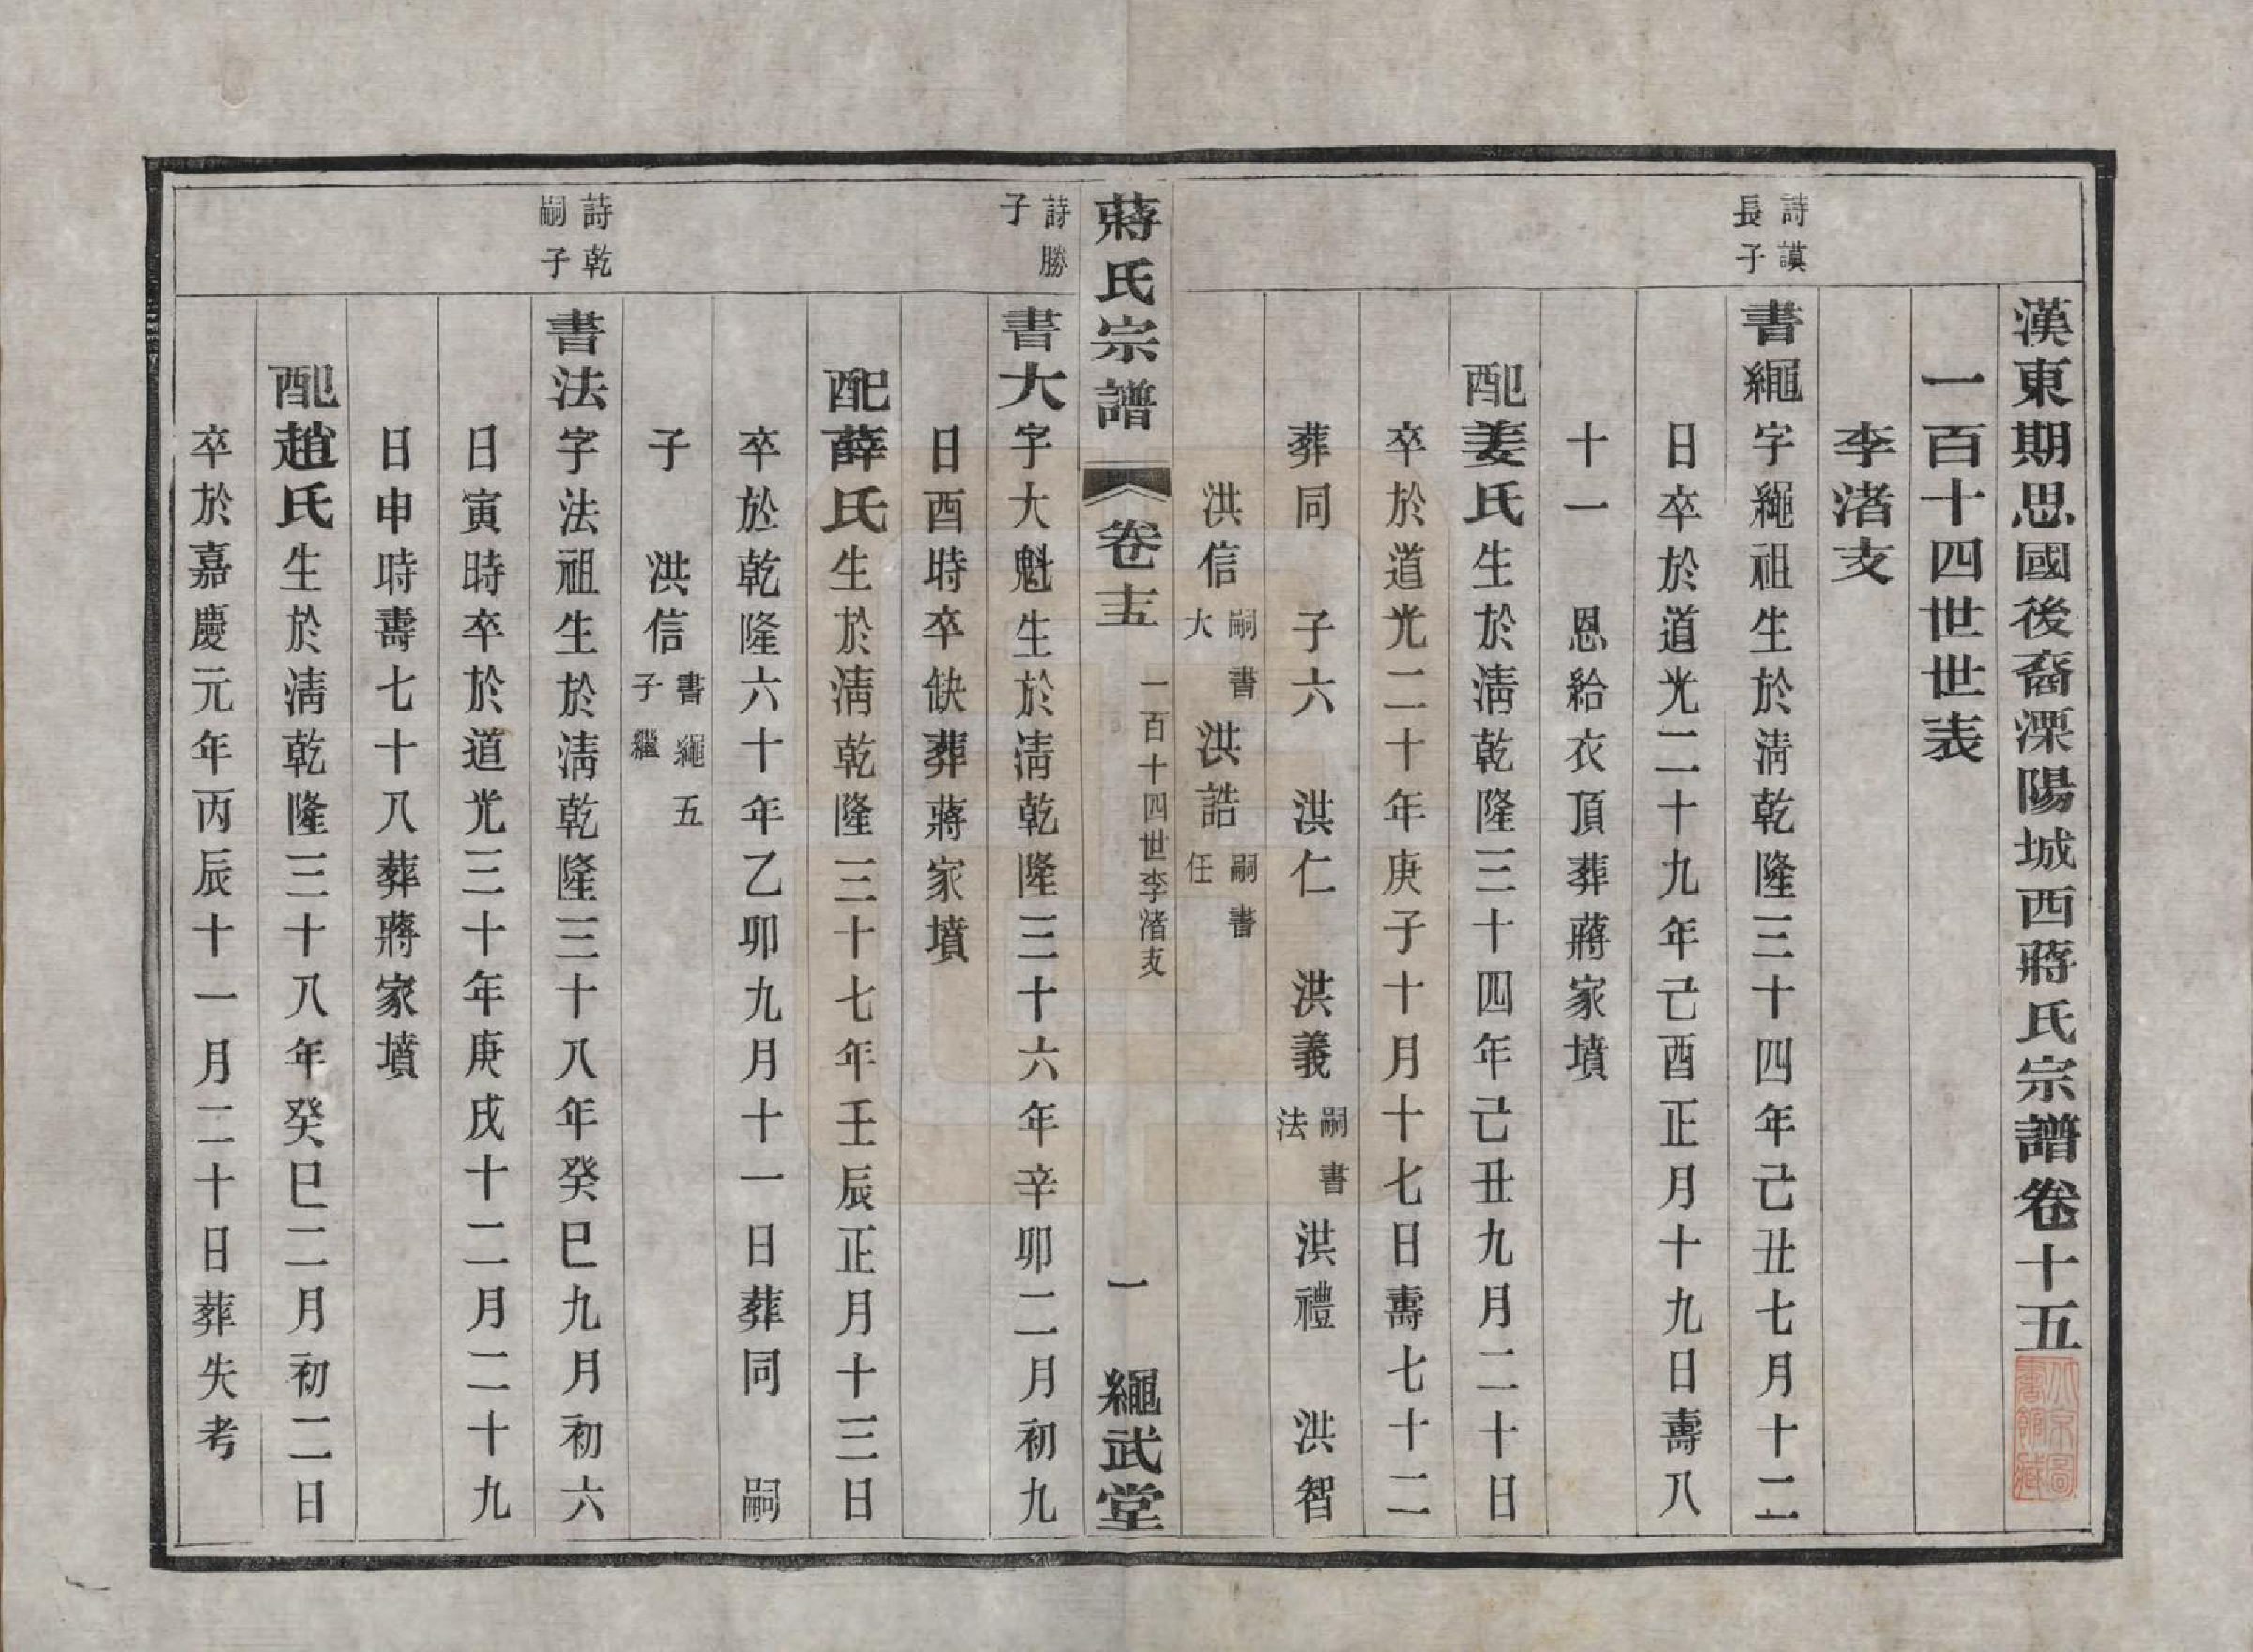 漢東期思國後裔溧陽城西蔣氏宗譜卷十五
一百十四世世表
李渚支
詩謨長子
書繩字繩祖生於淸乾隆三十四年己丑七月十二
日卒於道光二十九年己酉正月十九日壽八
十一　恩給衣頂葬蔣家墳
配姜氏生於淸乾隆三十四年己丑九月二十日
卒於道光二十年庚子十月十七日壽七十二
葬同　子六　洪仁　洪義嗣書法　洪禮　洪智
洪信嗣書大　洪誥嗣書任
蔣氏宗譜　卷十五　一百十四世李渚支　一　繩武堂
詩勝子
書大字大魁生於淸乾隆三十六年辛卯二月初九
日酉時卒缺葬蔣家墳
配薛氏生於淸乾隆三十七年壬辰正月十三日
卒於乾隆六十年乙卯九月十一日葬同　嗣
子　洪信書繩五子繼
詩乾嗣子
書法字法祖生於淸乾隆三十八年癸巳九月初六
日寅時卒於道光三十年庚戌十二月二十九
日申時壽七十八葬蔣家墳
配趙氏生於淸乾隆三十八年癸巳二月初二日
卒於嘉慶元年丙辰十一月二十日葬失考